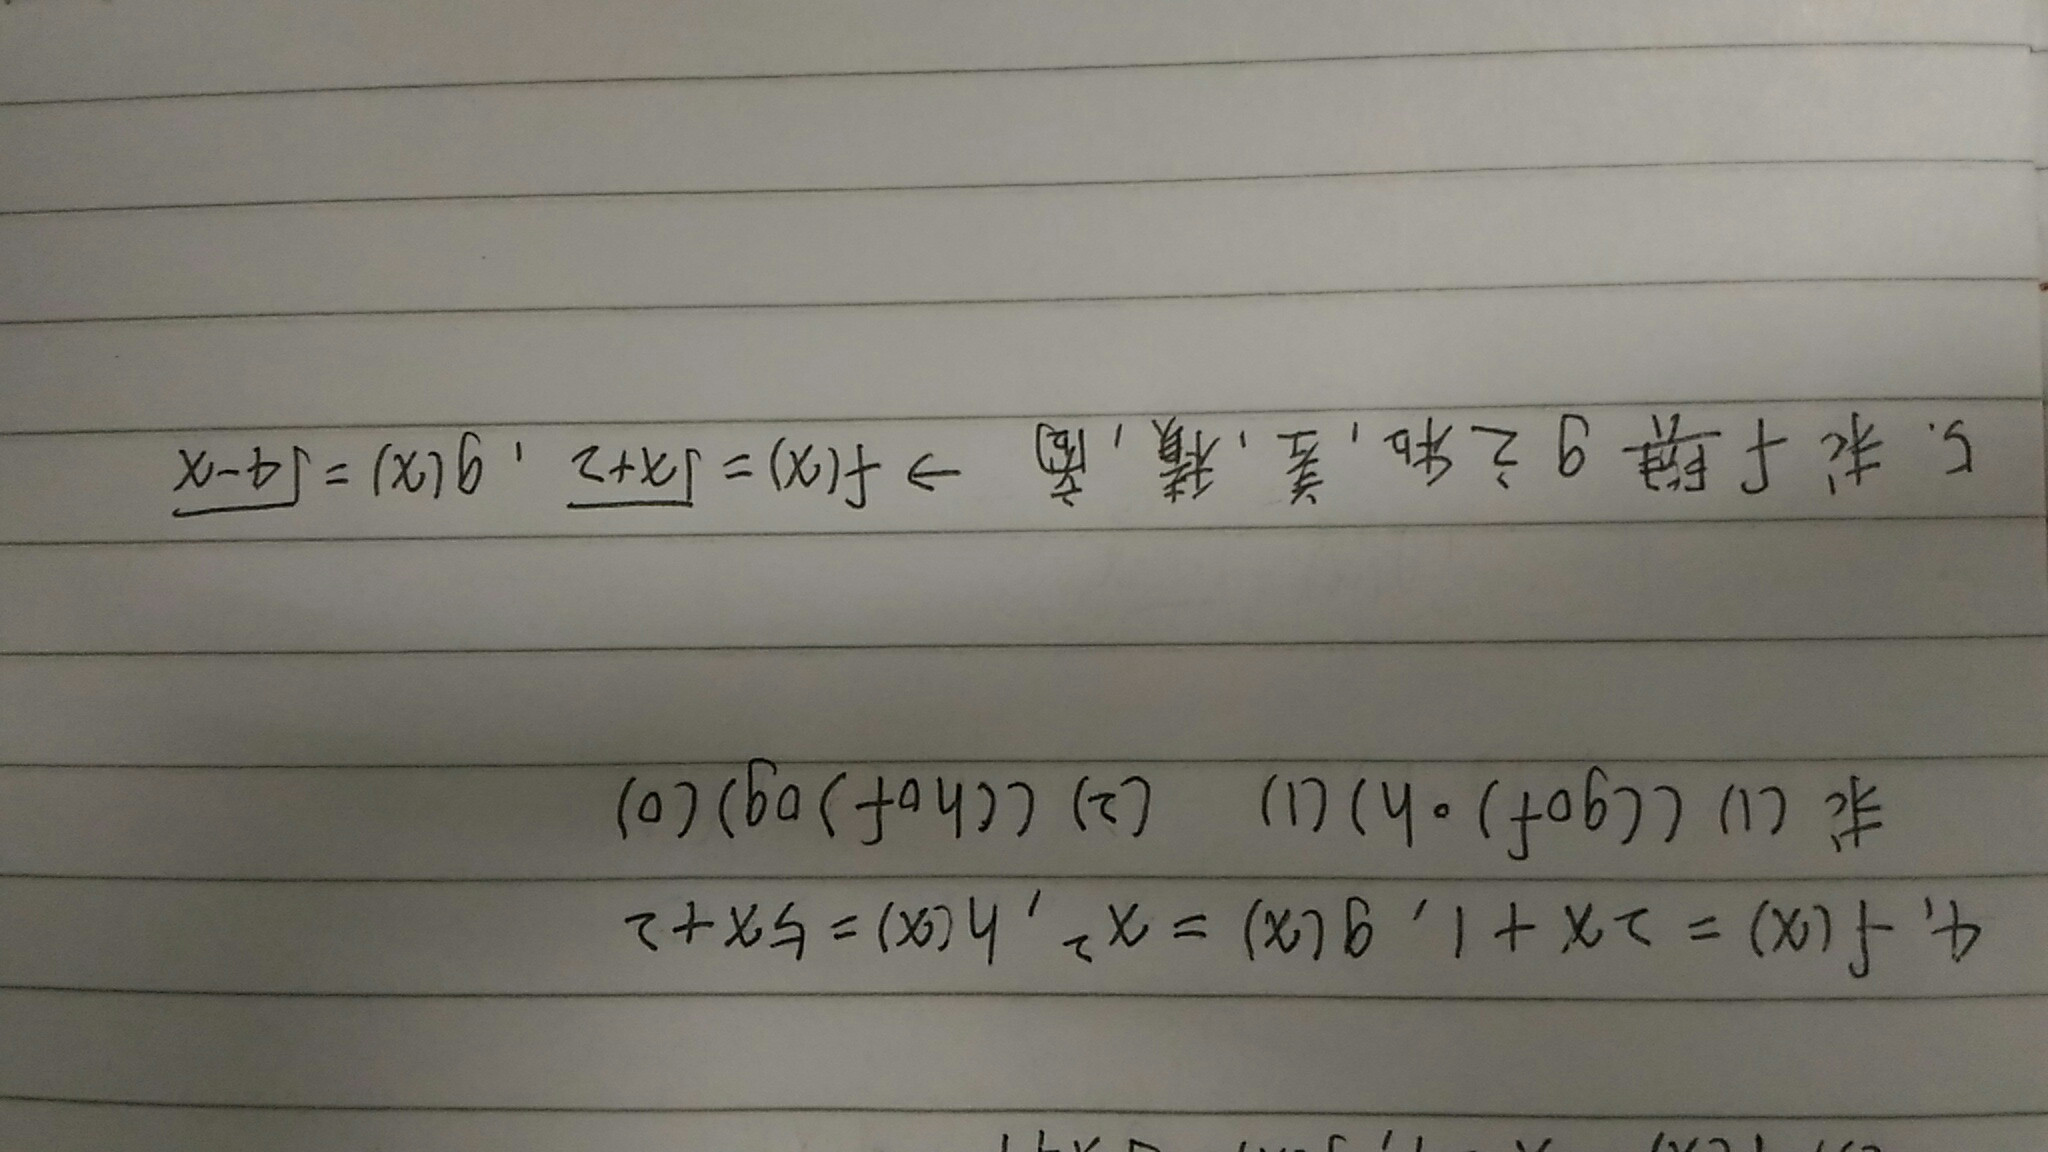 4. f(x) = 2x + 1, g(x) = x², h(x) = 5x+2
求 (1) ((gof)∘h)(1) (2) ((hof)og)(0)
5. 求 f 與 g 之和, 差, 積, 商 → f(x) = √x+2, g(x) = √4-x